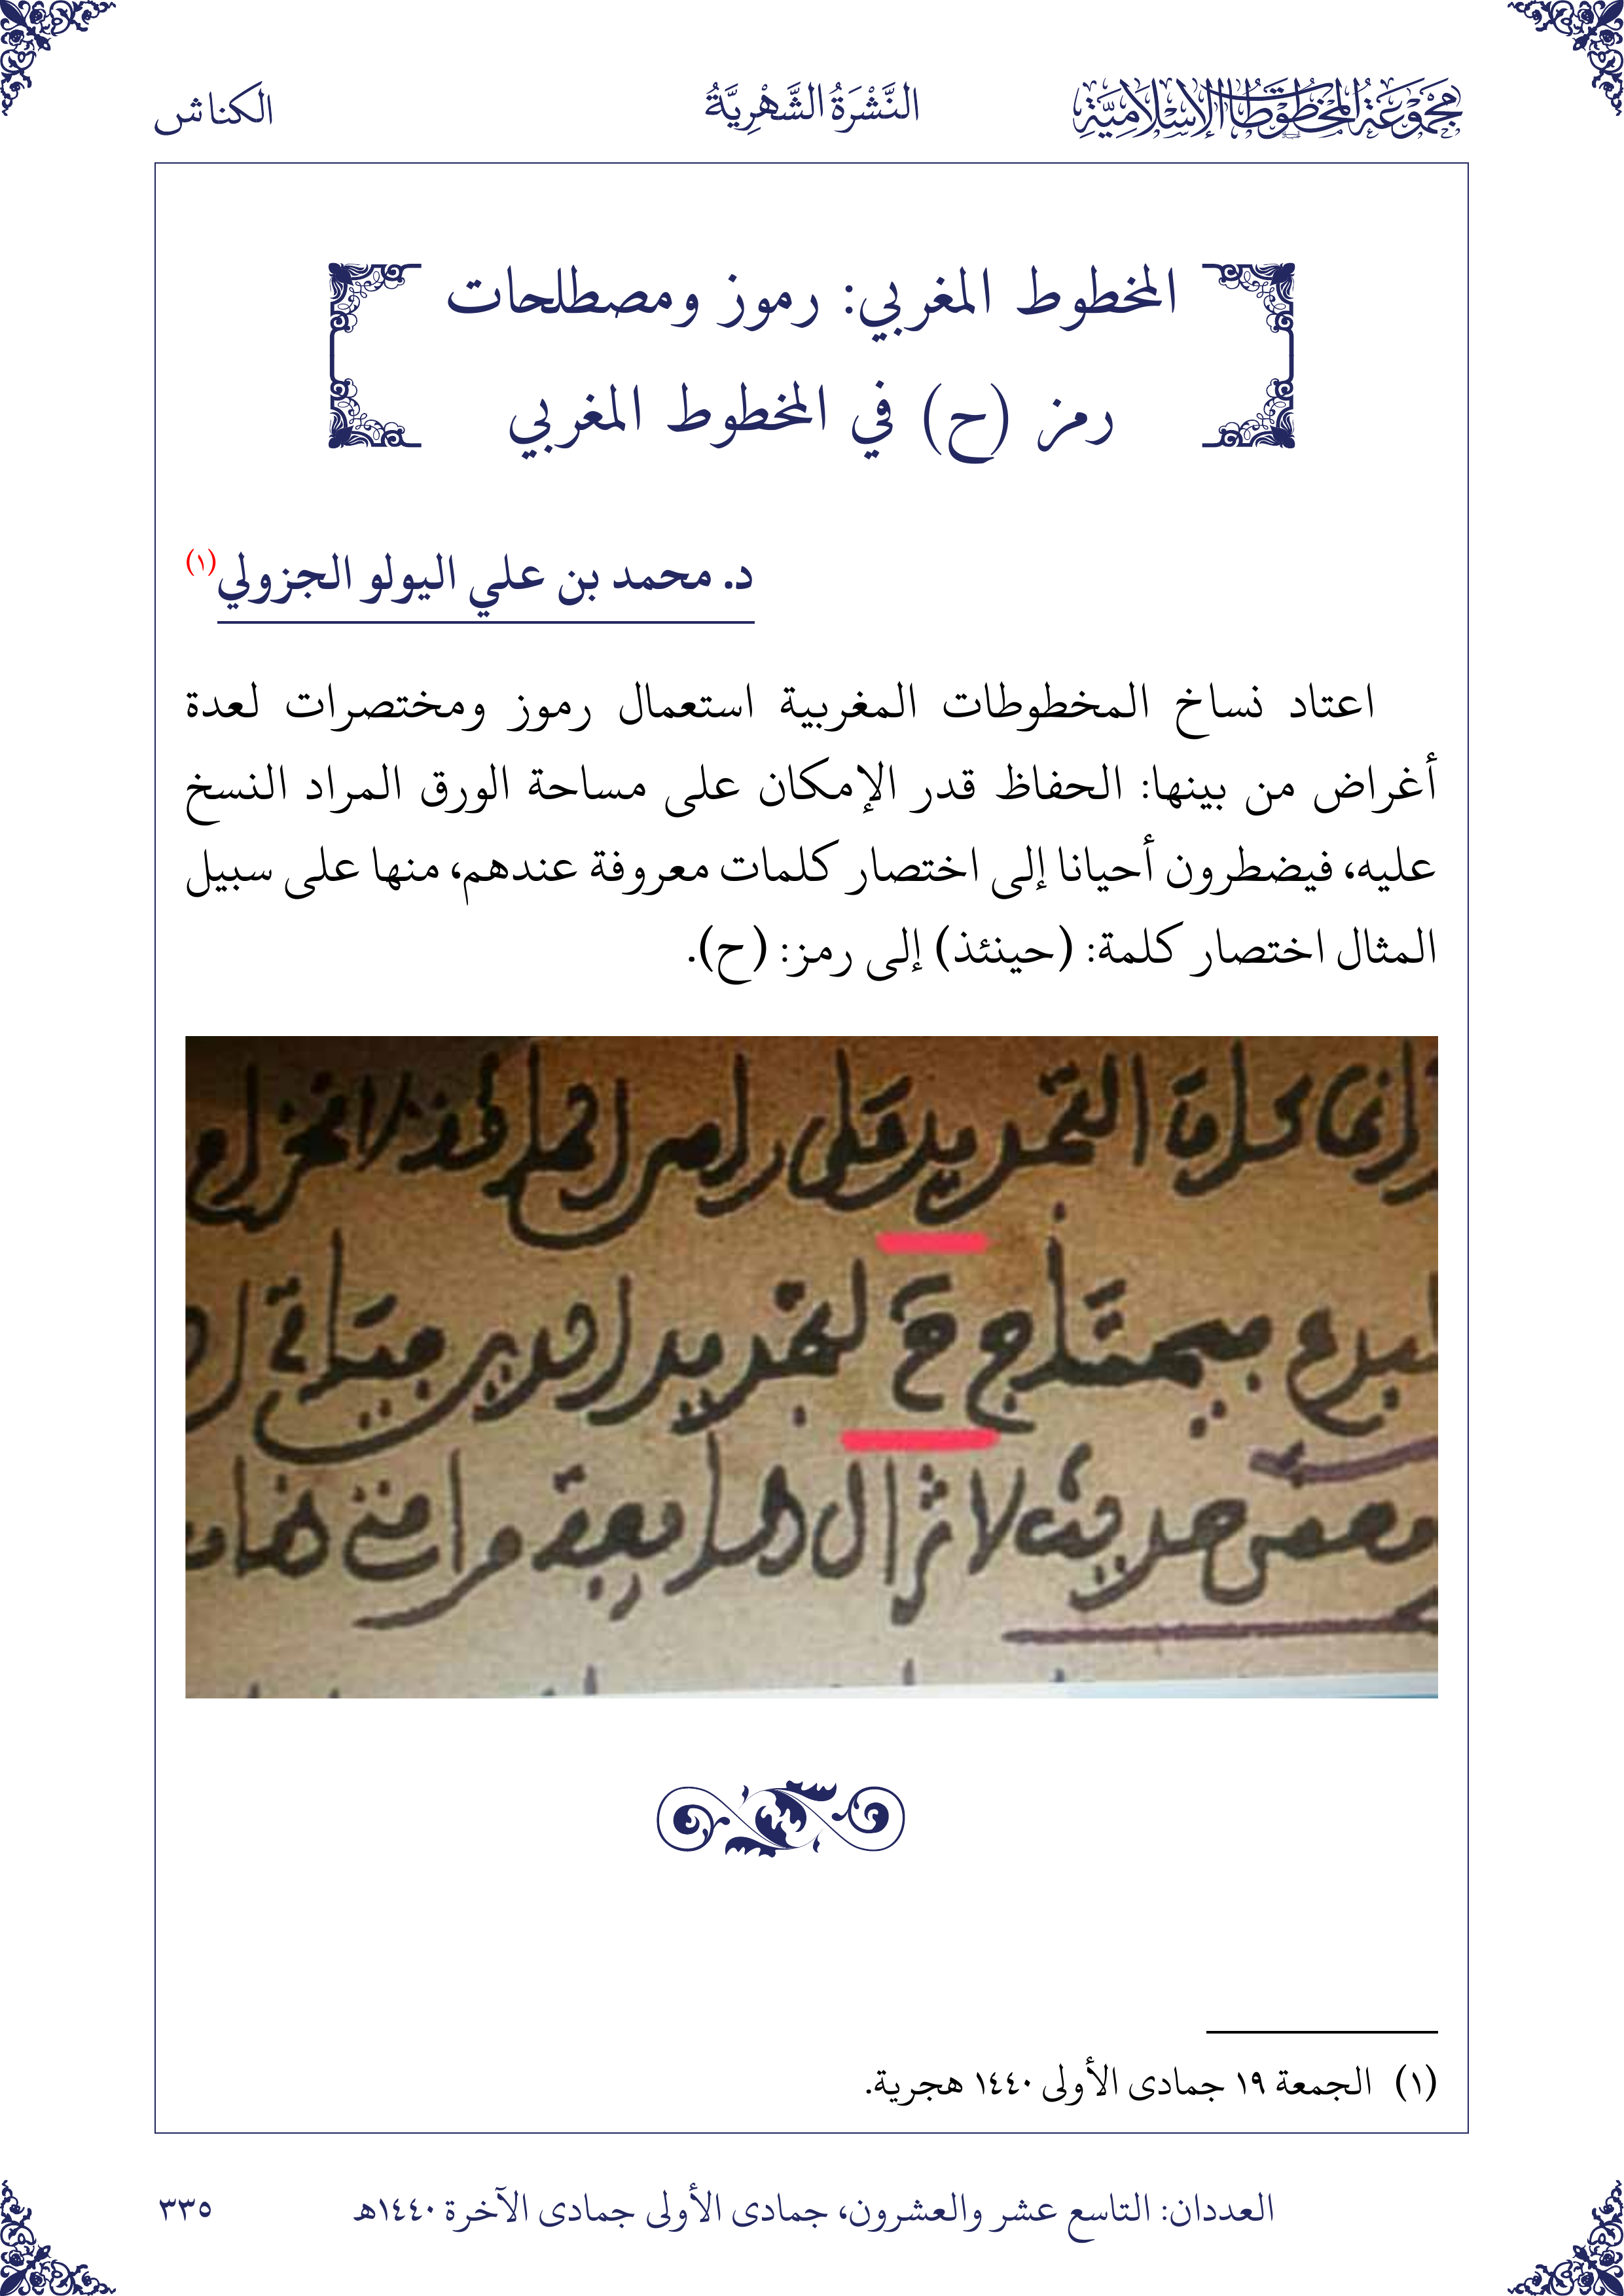 مَجْمُوعَةُ المَخْطُوطَاتِ الإِسْلَامِيَّةِ
النَّشْرَةُ الشَّهْرِيَّةُ
الكناش
المخطوط المغربي: رموز ومصطلحات
رمز (ح) في المخطوط المغربي
د. محمد بن علي اليولو الجزولي(١)
اعتاد نساخ المخطوطات المغربية استعمال رموز ومختصرات لعدة
أغراض من بينها: الحفاظ قدر الإمكان على مساحة الورق المراد النسخ
عليه، فيضطرون أحيانا إلى اختصار كلمات معروفة عندهم، منها على سبيل
المثال اختصار كلمة: (حينئذ) إلى رمز: (ح).
التجديد على راس
فيحتاج ح لتجديد الدين
حديث لا تزال طايفة من امتي
(١) الجمعة ١٩ جمادى الأولى ١٤٤٠ هجرية.
العددان: التاسع عشر والعشرون، جمادى الأولى جمادى الآخرة ١٤٤٠هـ
٣٣٥